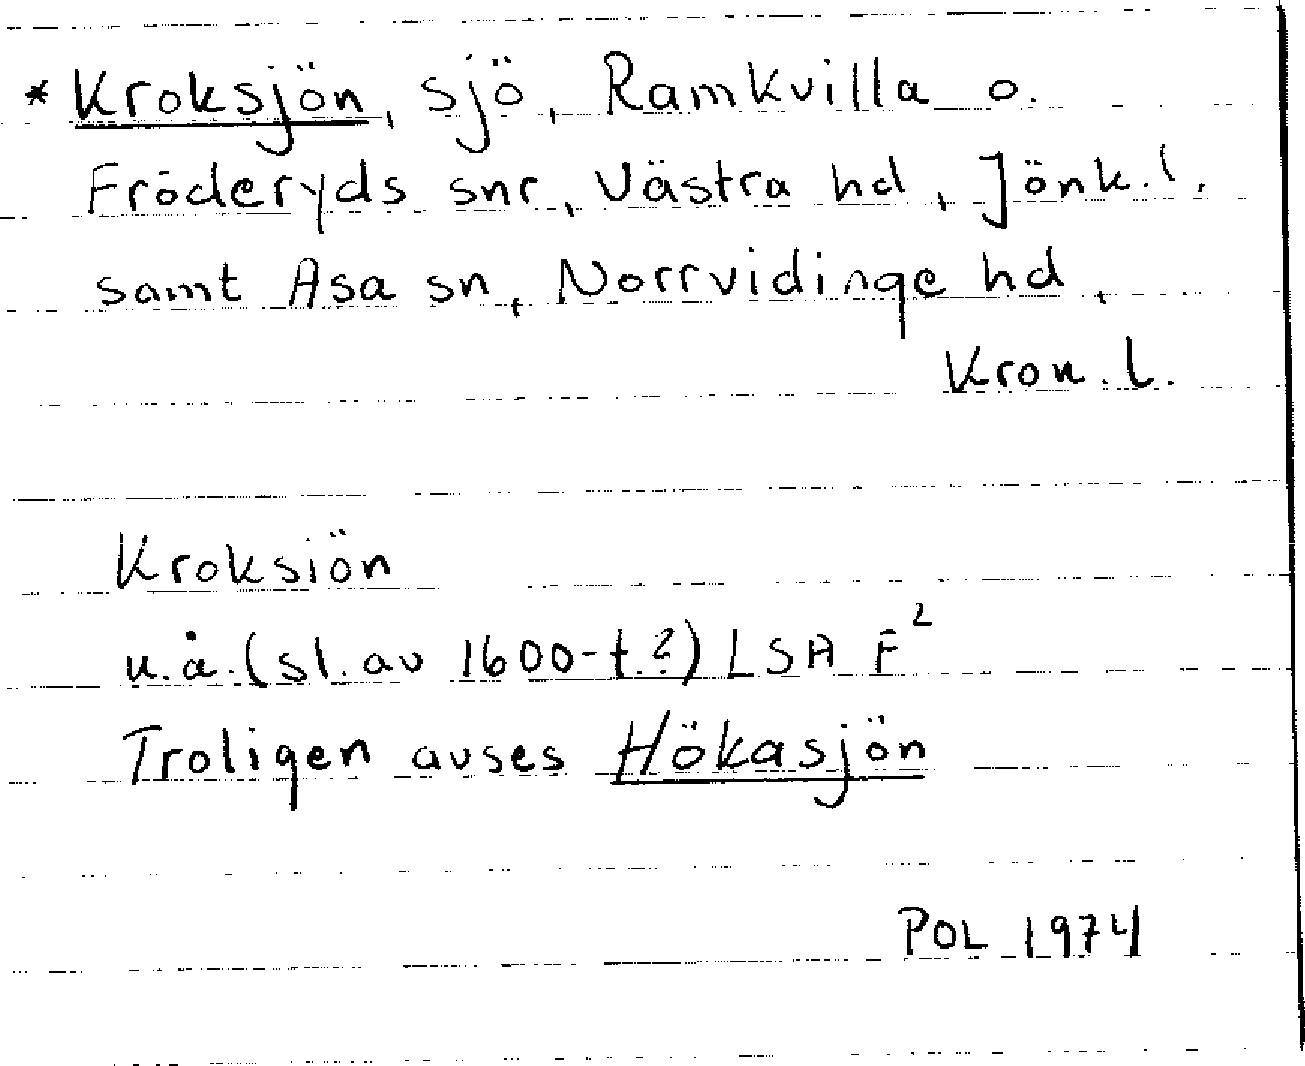 * Kroksjön, sjö, Ramkvilla o.
Fröderyds snr, Västra hd, Jönk. l.
samt Asa sn, Norrvidinge hd,
Kron. l.
Kroksiön
u.å. (sl. av 1600-t.?) LSA F²
Troligen avses Hökasjön
POL 1974